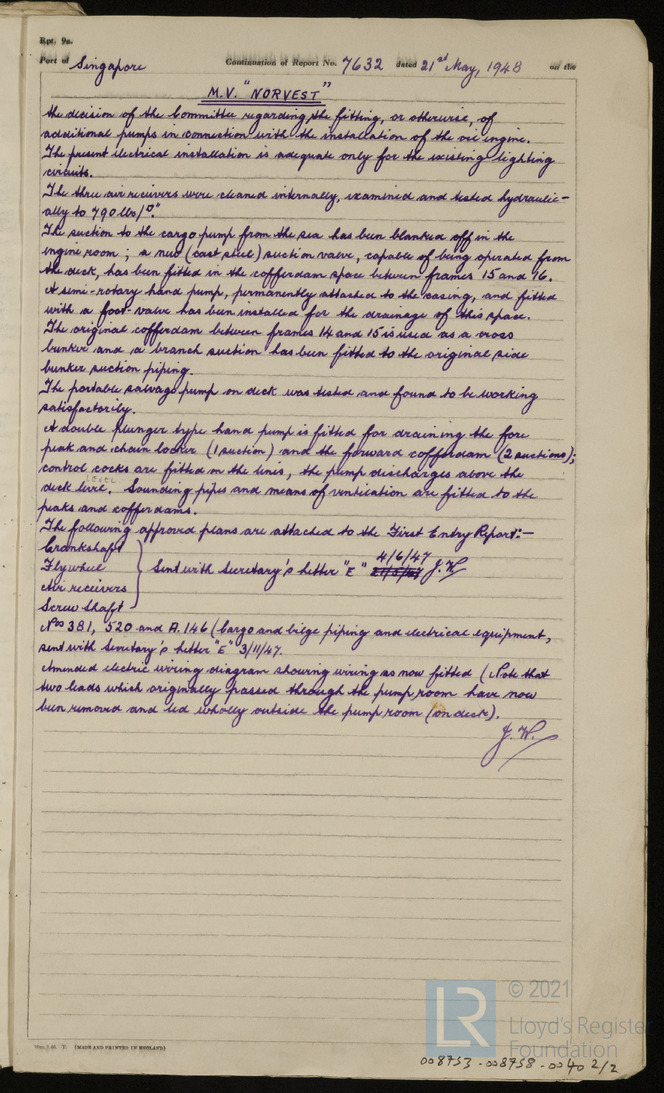 Rpt. 9a.
Port of Singapore Continuation of Report No. 7632 dated 21st May, 1948 on the
M.V. "NORVEST"
the decision of the Committee regarding the fitting, or otherwise, of
additional pumps in connection with the installation of the oil engine.
The present electrical installation is adequate only for the existing lighting
circuits.
The three air receivers were cleaned internally, examined and tested hydraulic-
ally to 790 lbs/□".
The suction to the cargo pump from the sea has been blanked off in the
engine room; a new (cast steel) suction valve, capable of being operated from
the deck, has been fitted in the cofferdam space between frames 15 and 16.
A semi-rotary hand pump, permanently attached to the casing, and fitted
with a foot-valve has been installed for the drainage of this space.
The original cofferdam between frames 14 and 15 is used as a cross
bunker and a branch suction has been fitted to the original side
bunker suction piping.
The portable salvage pump on deck was tested and found to be working
satisfactorily.
A double plunger type hand pump is fitted for draining the fore
peak and chain locker (1 suction) and the forward cofferdam (2 suctions);
control cocks are fitted in the lines, the pump discharges above the
deck level. Sounding pipes and means of ventilation are fitted to the
peaks and cofferdams.
The following approved plans are attached to the First Entry Report:-
Crankshaft
4/6/47
Flywheel } Sent with Secretary's Letter "E" J.W.
Air receivers
Screw Shaft
Nos 381, 520 and A.146 (Cargo and bilge piping and electrical equipment,
sent with Secretary's Letter "E" 3/11/47.
Amended electric wiring diagram showing wiring as now fitted (Note that
two leads which originally passed through the pump room have now
been removed and led wholly outside the pump room (on deck).
J.W.
(MADE AND PRINTED IN ENGLAND)
LR © 2021
Lloyd's Register
Foundation
008753-008758-0040 2/2